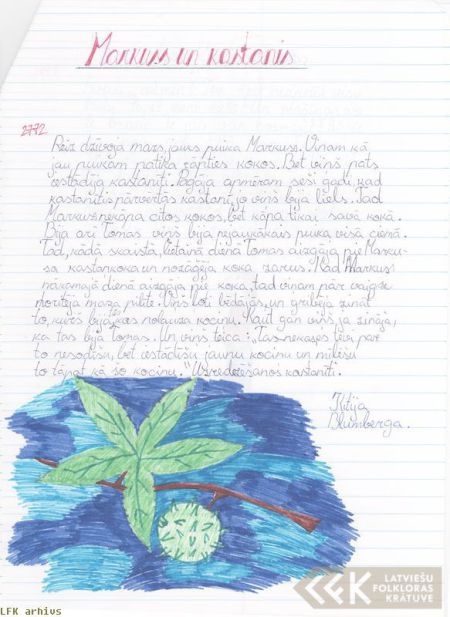 Markuss un kastanis
2772
Reiz dzīvoja mazs, jauks puika Markuss. Viņam kā
jau puikam patika rāpties kokos. Bet viņš pats
iestādīja kastanīti. Pagāja apmēram seši gadi, kad
kastanītis pārvērtās kastanī, jo viņš bija liels. Tad
Markuss nekāpa citos kokos, bet kāpa tikai savā kokā.
Bija arī Tomas viņš bija nejaukākais puika visā ciemā.
Tad, kādā skaistā, lietainā dienā Tomas aizgāja pie Marku-
sa kastaņkoka un nozāģēja koka zarus. Kad Markuss
nākamajā dienā aizgāja pie koka, tad viņam pār vaigu
noritēja maza pilīte. Viņš ļoti bēdājās, un gribēja zināt
to, kurš bija tas nolauza kociņu. Kaut gan viņš ja zināja,
ka tas bija Tomas. Un viņš teica: "Tas nekas, es tevi par
to nesodīšu, bet iestādīšu jaunu kociņu un mīlēšu
to tāpat kā šo kociņu." Uzredzēšanos kastanīti.
Kitija
Blumberga.
LATVIEŠU
FOLKLORAS
KRĀTUVE
LFK arhīvs